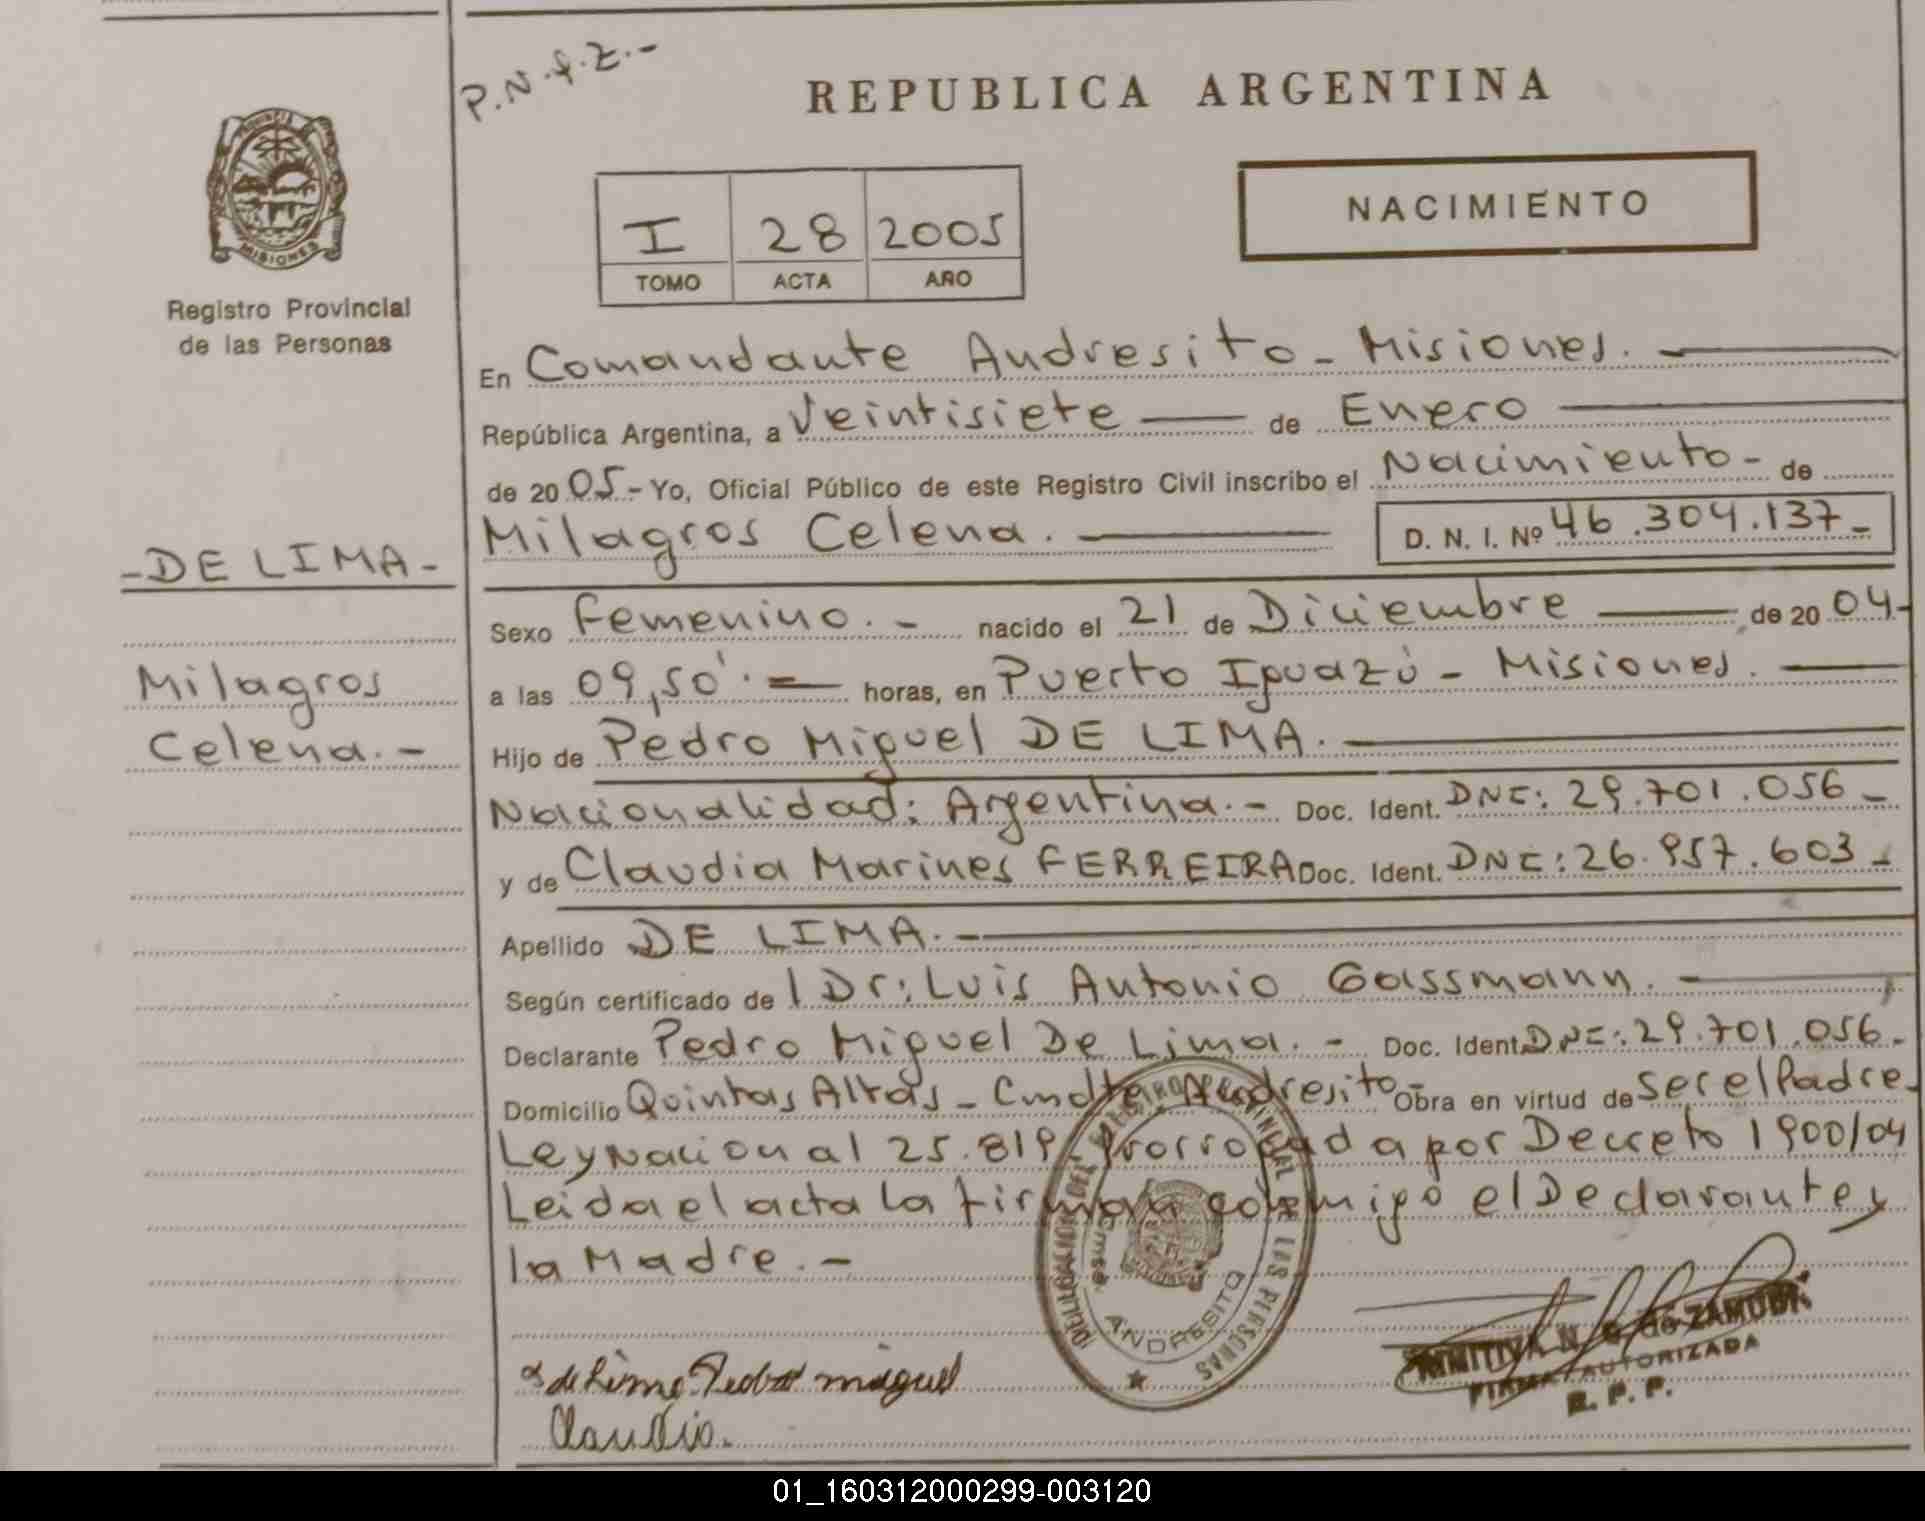 P.N.f.Z.-
REPUBLICA ARGENTINA
PROVINCIA
MISIONES
Registro Provincial
de las Personas
I 28 2005
TOMO ACTA AÑO
NACIMIENTO
En Comandante Andresito - Misiones.
República Argentina, a Veintisiete de Enero
de 2005.- Yo, Oficial Público de este Registro Civil inscribo el Nacimiento - de
Milagros Celena. D. N. I. Nº 46.304.137-
-DE LIMA-
Milagros
Celena.-
Sexo Femenino.- nacido el 21 de Diciembre de 2004-
a las 09,50'.- horas, en Puerto Iguazú - Misiones.
Hijo de Pedro Miguel DE LIMA.
Nacionalidad: Argentina.- Doc. Ident. DNI: 29.701.056-
y de Claudia Marines FERREIRA Doc. Ident. DNI: 26.957.603-
Apellido DE LIMA.-
Según certificado de Dr: Luis Antonio Gassmann.-
Declarante Pedro Miguel De Lima.- Doc. Ident. DNI: 29.701.056.-
Domicilio Quintas Altas - Cmdte Andresito - Obra en virtud de Ser el Padre.
Ley Nacional 25.819 Prorrogada por Decreto 1900/04
Leida el acta la firman conmigo el Declarante y
la Madre.-
DELEGACION DEL REGISTRO PROVINCIAL DE LAS PERSONAS
ANDRESITO
de Lima Pedro miguel
Claudia.
N. G. de ZAMUDIO
FIRMA AUTORIZADA
R. P. P.
01_160312000299-003120